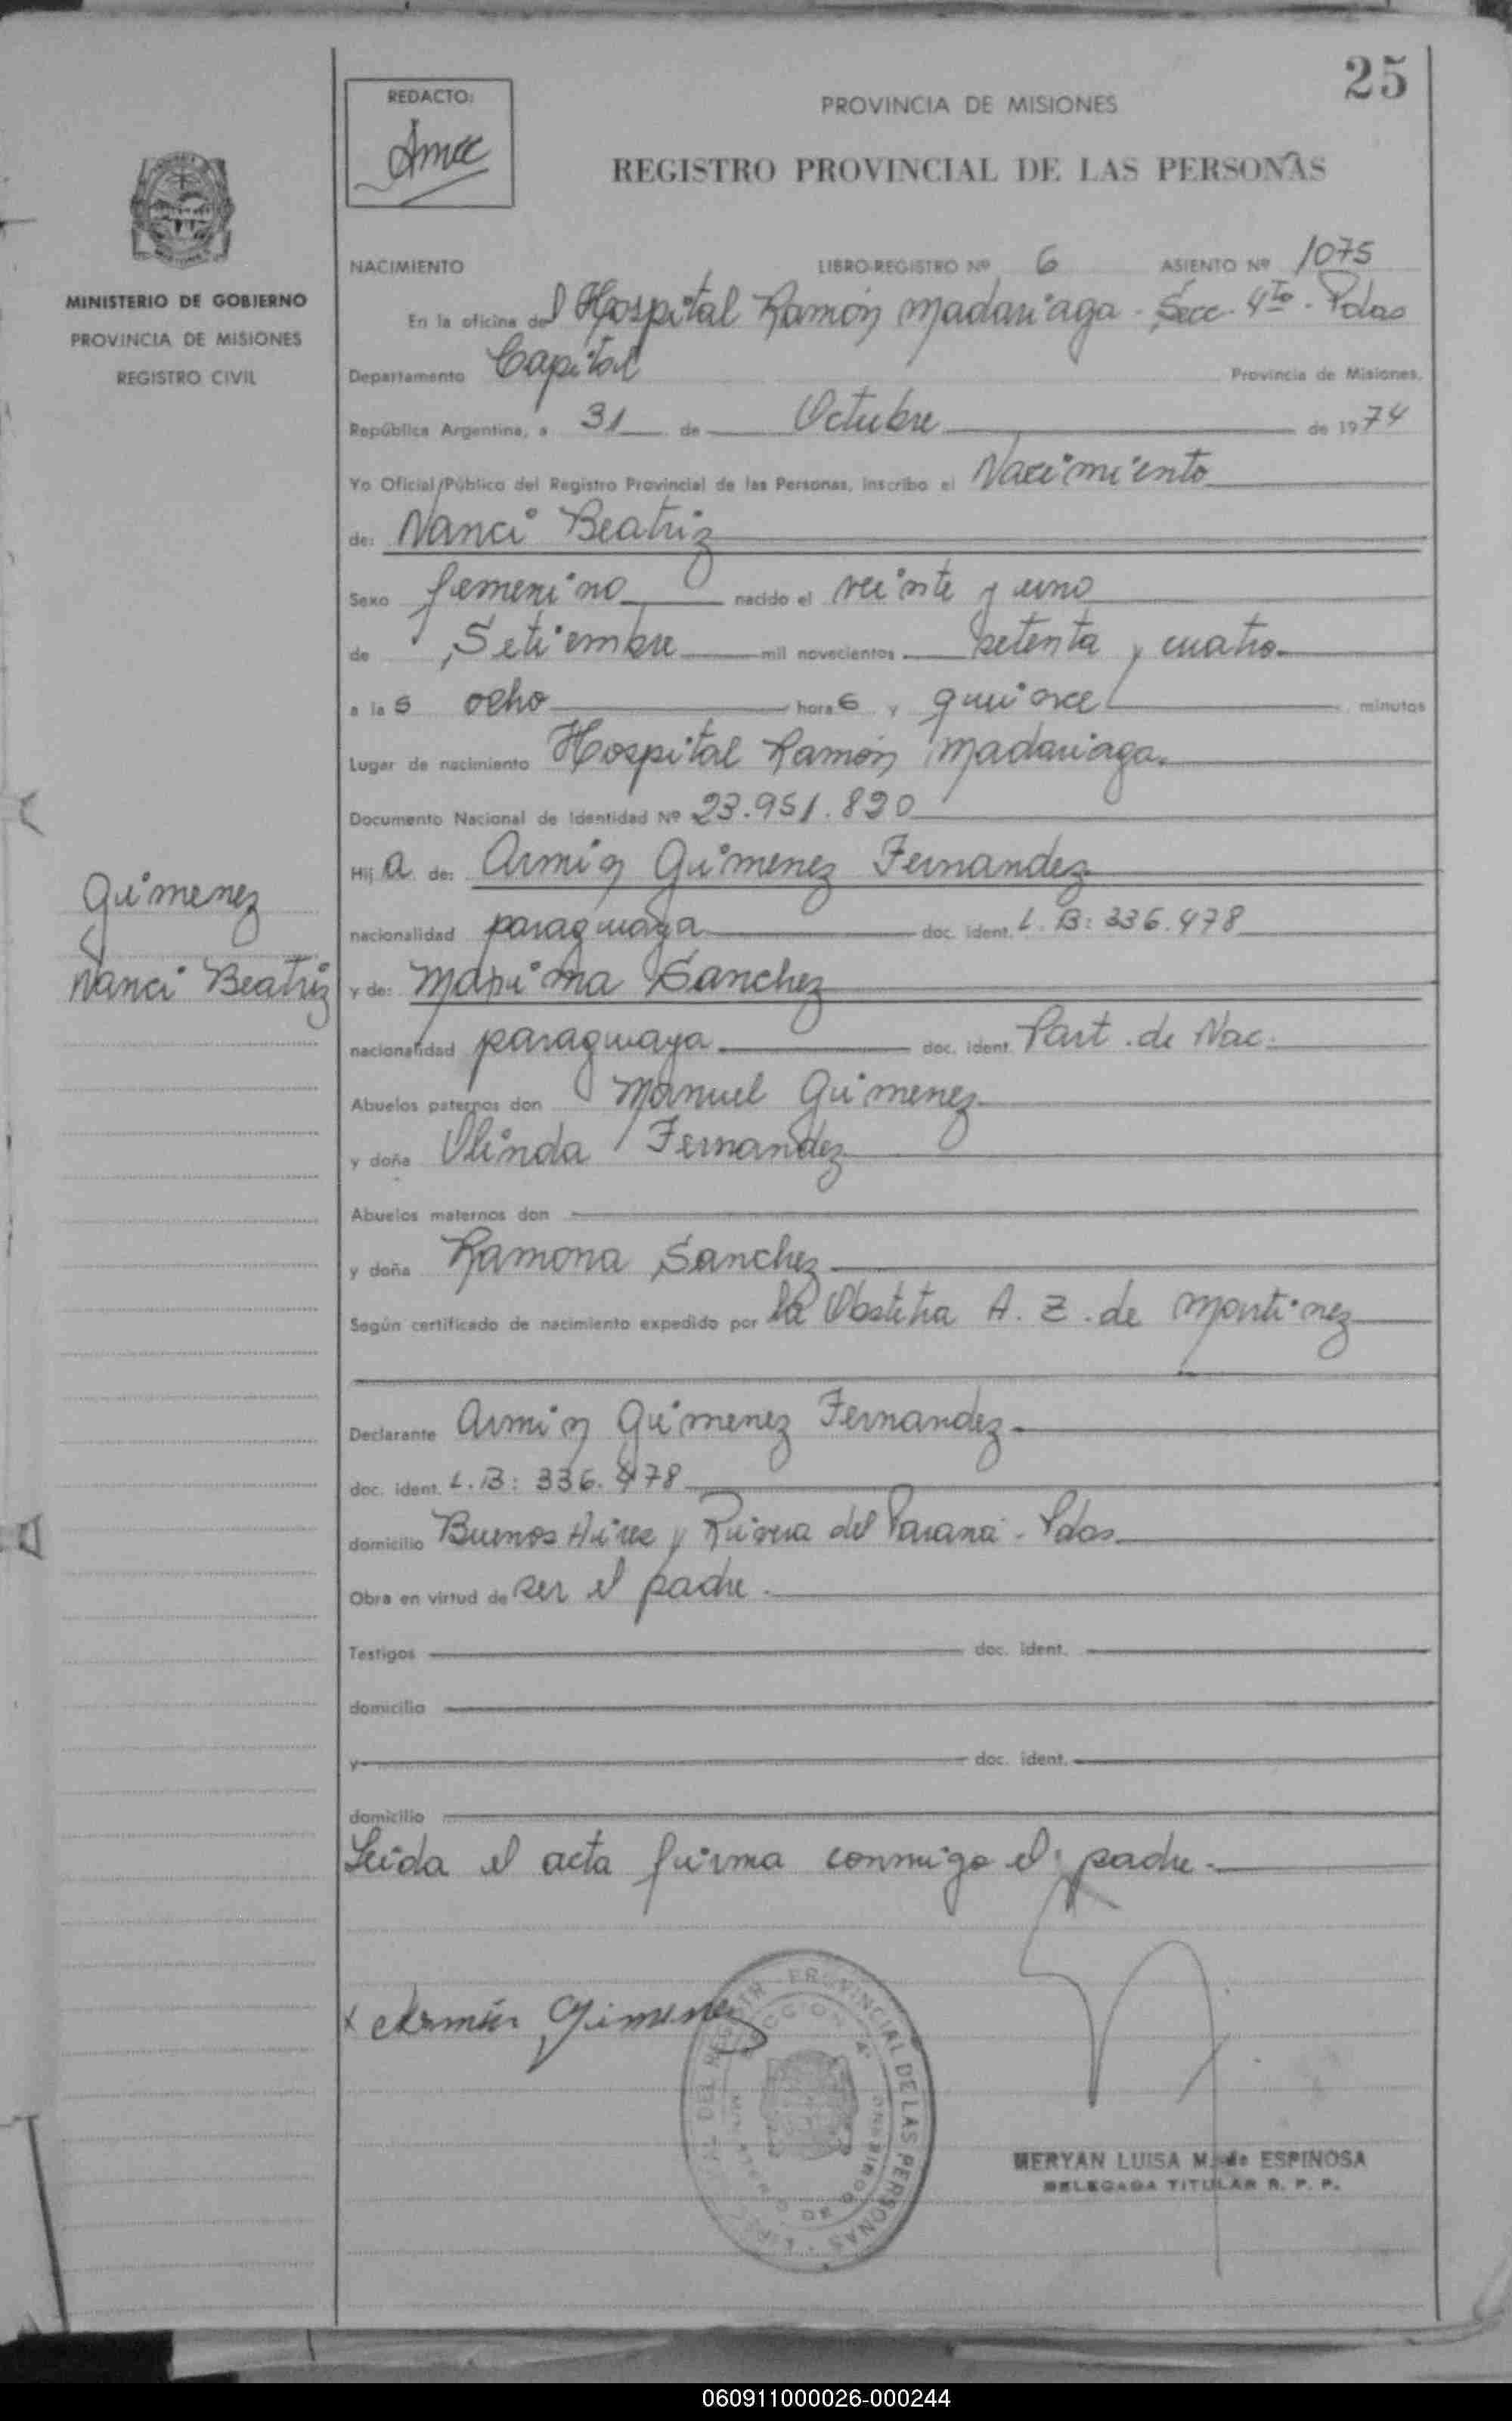 25
REDACTO:
PROVINCIA DE MISIONES
REGISTRO PROVINCIAL DE LAS PERSONAS
MINISTERIO DE GOBIERNO
PROVINCIA DE MISIONES
REGISTRO CIVIL
NACIMIENTO LIBRO-REGISTRO Nº 6 ASIENTO Nº 1075
En la oficina del Hospital Ramón Madariaga - Secc. 4ta - Pdas
Departamento Capital Provincia de Misiones,
República Argentina, a 31 de Octubre de 1974
Yo Oficial Público del Registro Provincial de las Personas, inscribo el Nacimiento
de: Nanci Beatriz
Sexo femenino nacido el veinte y uno
de Setiembre mil novecientos setenta y cuatro
a las ocho horas y quince minutos
Lugar de nacimiento Hospital Ramón Madariaga.
Documento Nacional de Identidad Nº 23.951.820
Hija de: Armin Gimenez Fernandez
nacionalidad paraguaya doc. ident. L. B: 336.478
Gimenez
Nanci Beatriz
y de: Maxima Sanchez
nacionalidad paraguaya doc. ident. Part. de Nac.
Abuelos paternos don Manuel Gimenez
y doña Olinda Fernandez
Abuelos maternos don
y doña Ramona Sanchez
Según certificado de nacimiento expedido por la Obstetra A. Z. de Martinez
Declarante Armin Gimenez Fernandez
doc. ident. L. B: 336.478
domicilio Buenos Aires y Rivera del Paraná - Pdas
Obra en virtud de ser el padre.
Testigos doc. ident.
domicilio
y doc. ident.
domicilio
Leida el acta firma conmigo el padre.
x Armin Gimenez
MERYAN LUISA M. de ESPINOSA
DELEGADA TITULAR R. P. P.
060911000026-000244